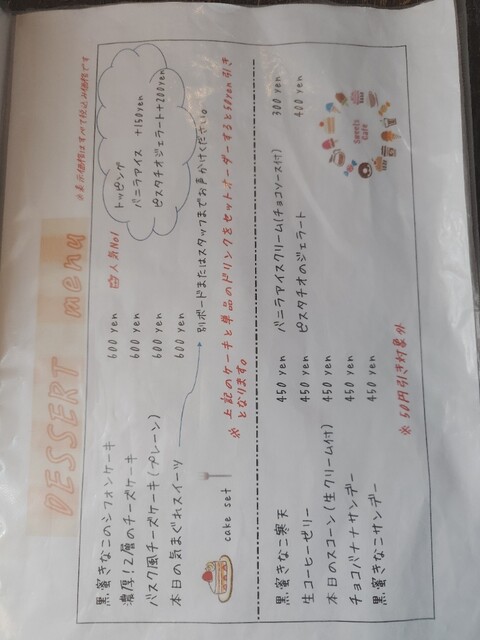 DESSERT menu
※表示価格はすべて税込み価格です
黒蜜きなこのシフォンケーキ 600 yen 人気No1
濃厚！2層のチーズケーキ 600 yen
バスク風チーズケーキ(プレーン) 600 yen
本日の気まぐれスイーツ 600 yen
別ボードまたはスタッフまでお声かけください。
トッピング
バニラアイス +150yen
ピスタチオジェラート +200yen
cake set
※ 上記のケーキと単品のドリンクをセットオーダーすると50yen引き
となります。
黒蜜きなこ寒天 450 yen
生コーヒーゼリー 450 yen
本日のスコーン(生クリーム付) 450 yen
チョコバナナサンデー 450 yen
黒蜜きなこサンデー 450 yen
バニラアイスクリーム(チョコソース付) 300 yen
ピスタチオのジェラート 400 yen
Sweets
Cafe
※ 50円引き対象外